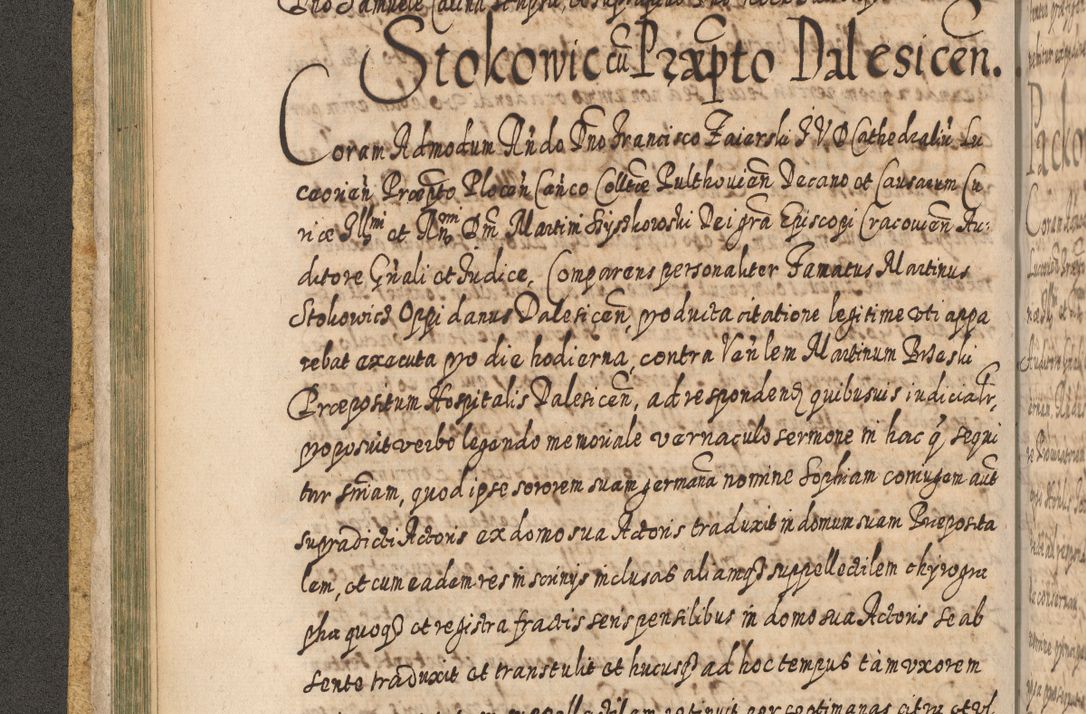 Stokowic cũ Præpto Dalesicen̄.
Coram Admodum Rñdo Dno Francisco Zaierski I V D Cathedraliũ Lu
ceorien̄ Præpto Plocen̄ Canco Colltæ Pulthovien̄ Decano et Causarum Cu
riæ Illmi et Rñmi Dm̄ Martini Szyszkowski Dei grã Episcopi Cracovien̄ Au:
ditore Gñali et Iudice, Comparens personaliter Famatus Martinus
Stokowicz Oppidanus Dalesicen̄, producta citatione legitime vti appa
rebat executa pro die hodierna, contra Veñlem Martinum Brzeski
Præpositum Hospitalis Dalesicen̄, ad respondenꝫ quibusuis iudicialr̃,
proposuit verbo legendo memoriale vernaculo sermone in hac q̃ sequi
tur sñiam, quod ipse sororem suam germanã nomine Sophiam coniugem aut̃
supradicti Actoris ex domo sua Actoris traduxit in domum suam Præposita
lem, et cum eadem res in scrinijs inclusas aliamqꝫ suppellectilem chyrogra
pha quoqꝫ et registra fractis seris pensilibus in domo sua Actoris se ab
sente traduxit et transtulit et hucusqꝫ ad hoc tempus tàm vxorem